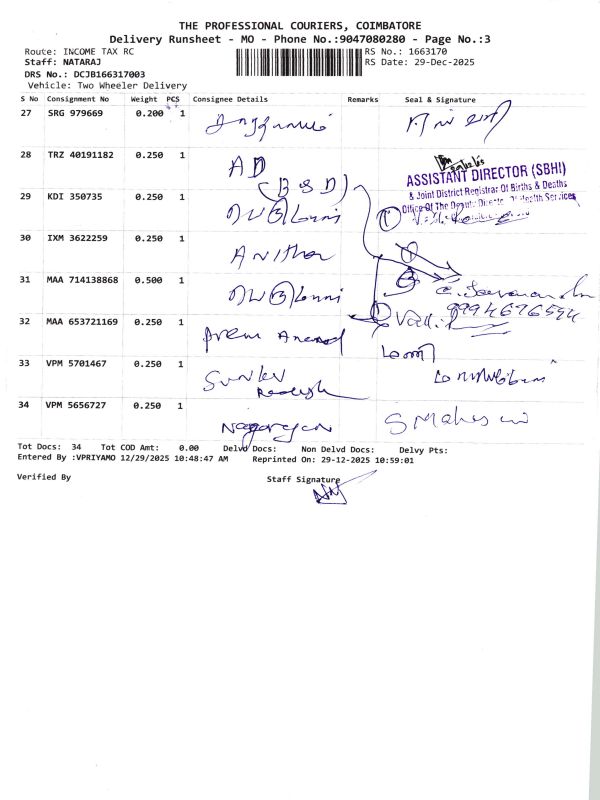 THE PROFESSIONAL COURIERS, COIMBATORE
Delivery Runsheet - MO - Phone No.:9047080280 - Page No.:3
Route: INCOME TAX RC
RS No.: 1663170
Staff: NATARAJ
RS Date: 29-Dec-2025
DRS No.: DCJB166317003
Vehicle: Two Wheeler Delivery
S No Consignment No Weight PCS Consignee Details Remarks Seal & Signature
27 SRG 979669 0.200 1
28 TRZ 40191182 0.250 1 AD
(B & D)
ASSISTANT DIRECTOR (SBHI)
& Joint District Registrar Of Births & Deaths
Office Of The Deputy Director Of Health Services
29 KDI 350735 0.250 1
30 IXM 3622259 0.250 1 Anitha
31 MAA 714138868 0.500 1
9994696594
32 MAA 653721169 0.250 1 Prem Anand
Valli
33 VPM 5701467 0.250 1
34 VPM 5656727 0.250 1 Nagarajan
Tot Docs: 34 Tot COD Amt: 0.00 Delvd Docs: Non Delvd Docs: Delvy Pts:
Entered By :VPRIYAMO 12/29/2025 10:48:47 AM Reprinted On: 29-12-2025 10:59:01
Verified By
Staff Signature